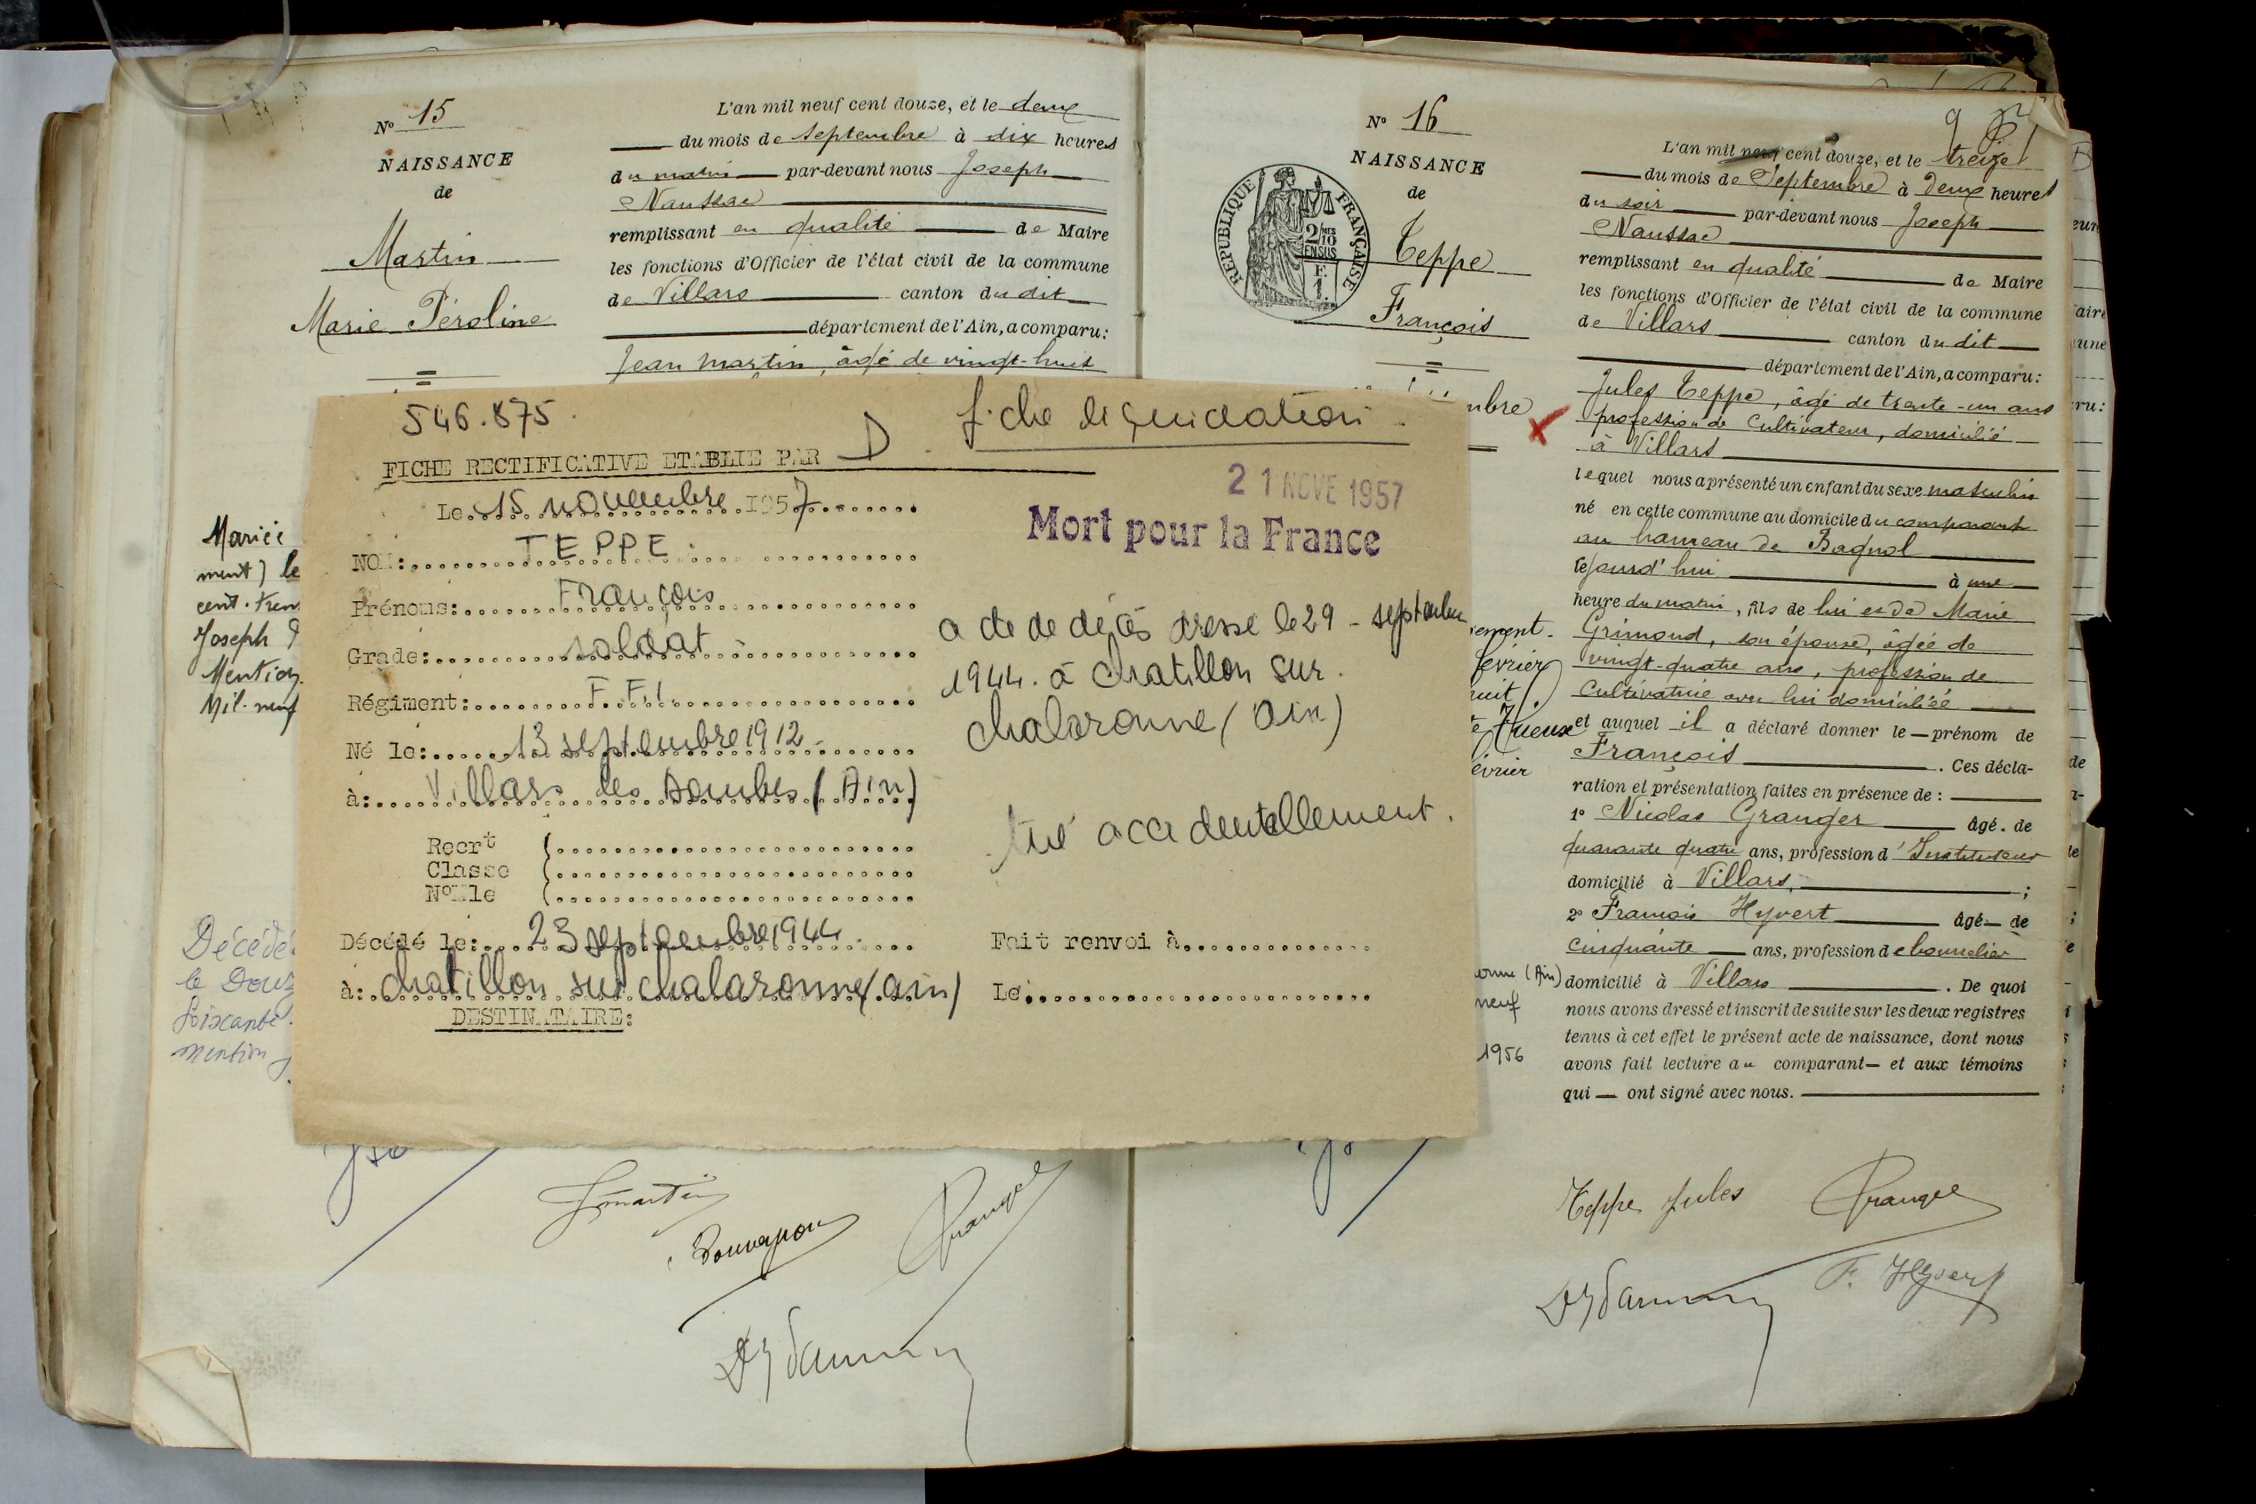 N° 15
NAISSANCE
de
Martin
Marie Péroline
L'an mil neuf cent douze, et le deux
du mois de septembre à dix heures
du matin par-devant nous Joseph
Naussac
remplissant en qualité de Maire
les fonctions d'Officier de l'état civil de la commune
de Villars canton du dit
département de l'Ain, a comparu:
Jean Martin, âgé de vingt-huit
Mariée
ment) le
cent-tren
Joseph
Mention
Mil-neuf
Décédée
le Douz
soixante
mention
546.875.
fiche liquidation.
FICHE RECTIFICATIVE ETABLIE PAR D.
21 NOVE 1957
Le 15 novembre 1957
Mort pour la France
NOM: TEPPE.
Prénoms: François
Grade: soldat
Régiment: F.F.I.
Né le: 13 septembre 1912
à: Villars les Dombes (Ain)
Recrt
Classe
N°Mle
Décédé le: 23 septembre 1944
à: chatillon sur chalaronne (ain)
DESTINATAIRE:
acte de décès dressé le 29 - septembre
1944. à chatillon sur.
chalaronne (ain)
tué accidentellement.
Fait renvoi à
Le
N° 16
NAISSANCE
de
Teppe
François
mbre
RÉPUBLIQUE FRANÇAISE
2/10
EN SUS
L'an mil neuf cent douze, et le treize
du mois de Septembre à Deux heures
du soir par-devant nous Joseph
Naussac
remplissant en qualité de Maire
les fonctions d'Officier de l'état civil de la commune
de Villars canton du dit
département de l'Ain, a comparu:
Jules Teppe, âgé de trente-un ans
profession de Cultivateur, domicilié
à Villars
lequel nous a présenté un enfant du sexe masculin
né en cette commune au domicile du comparant
au hameau de Bagnol
cejourd'hui à une
heure du matin, fils de lui et de Marie
Grimond, son épouse, âgée de
vingt-quatre ans, profession de
Cultivatrice avec lui domiciliée
et auquel il a déclaré donner le prénom de
François. Ces décla-
ration et présentation faites en présence de:
1° Nicolas Granger âgé de
quarante quatre ans, profession d'Instituteur
domicilié à Villars;
2° François Hyvert âgé de
cinquante ans, profession de bourrelier
domicilié à Villars. De quoi
nous avons dressé et inscrit de suite sur les deux registres
tenus à cet effet le présent acte de naissance, dont nous
avons fait lecture au comparant et aux témoins
qui ont signé avec nous.
ement.
février
huit).
évrier
onne (Ain)
neuf
1956
JMartin
Teppe Jules
F. Hyvert